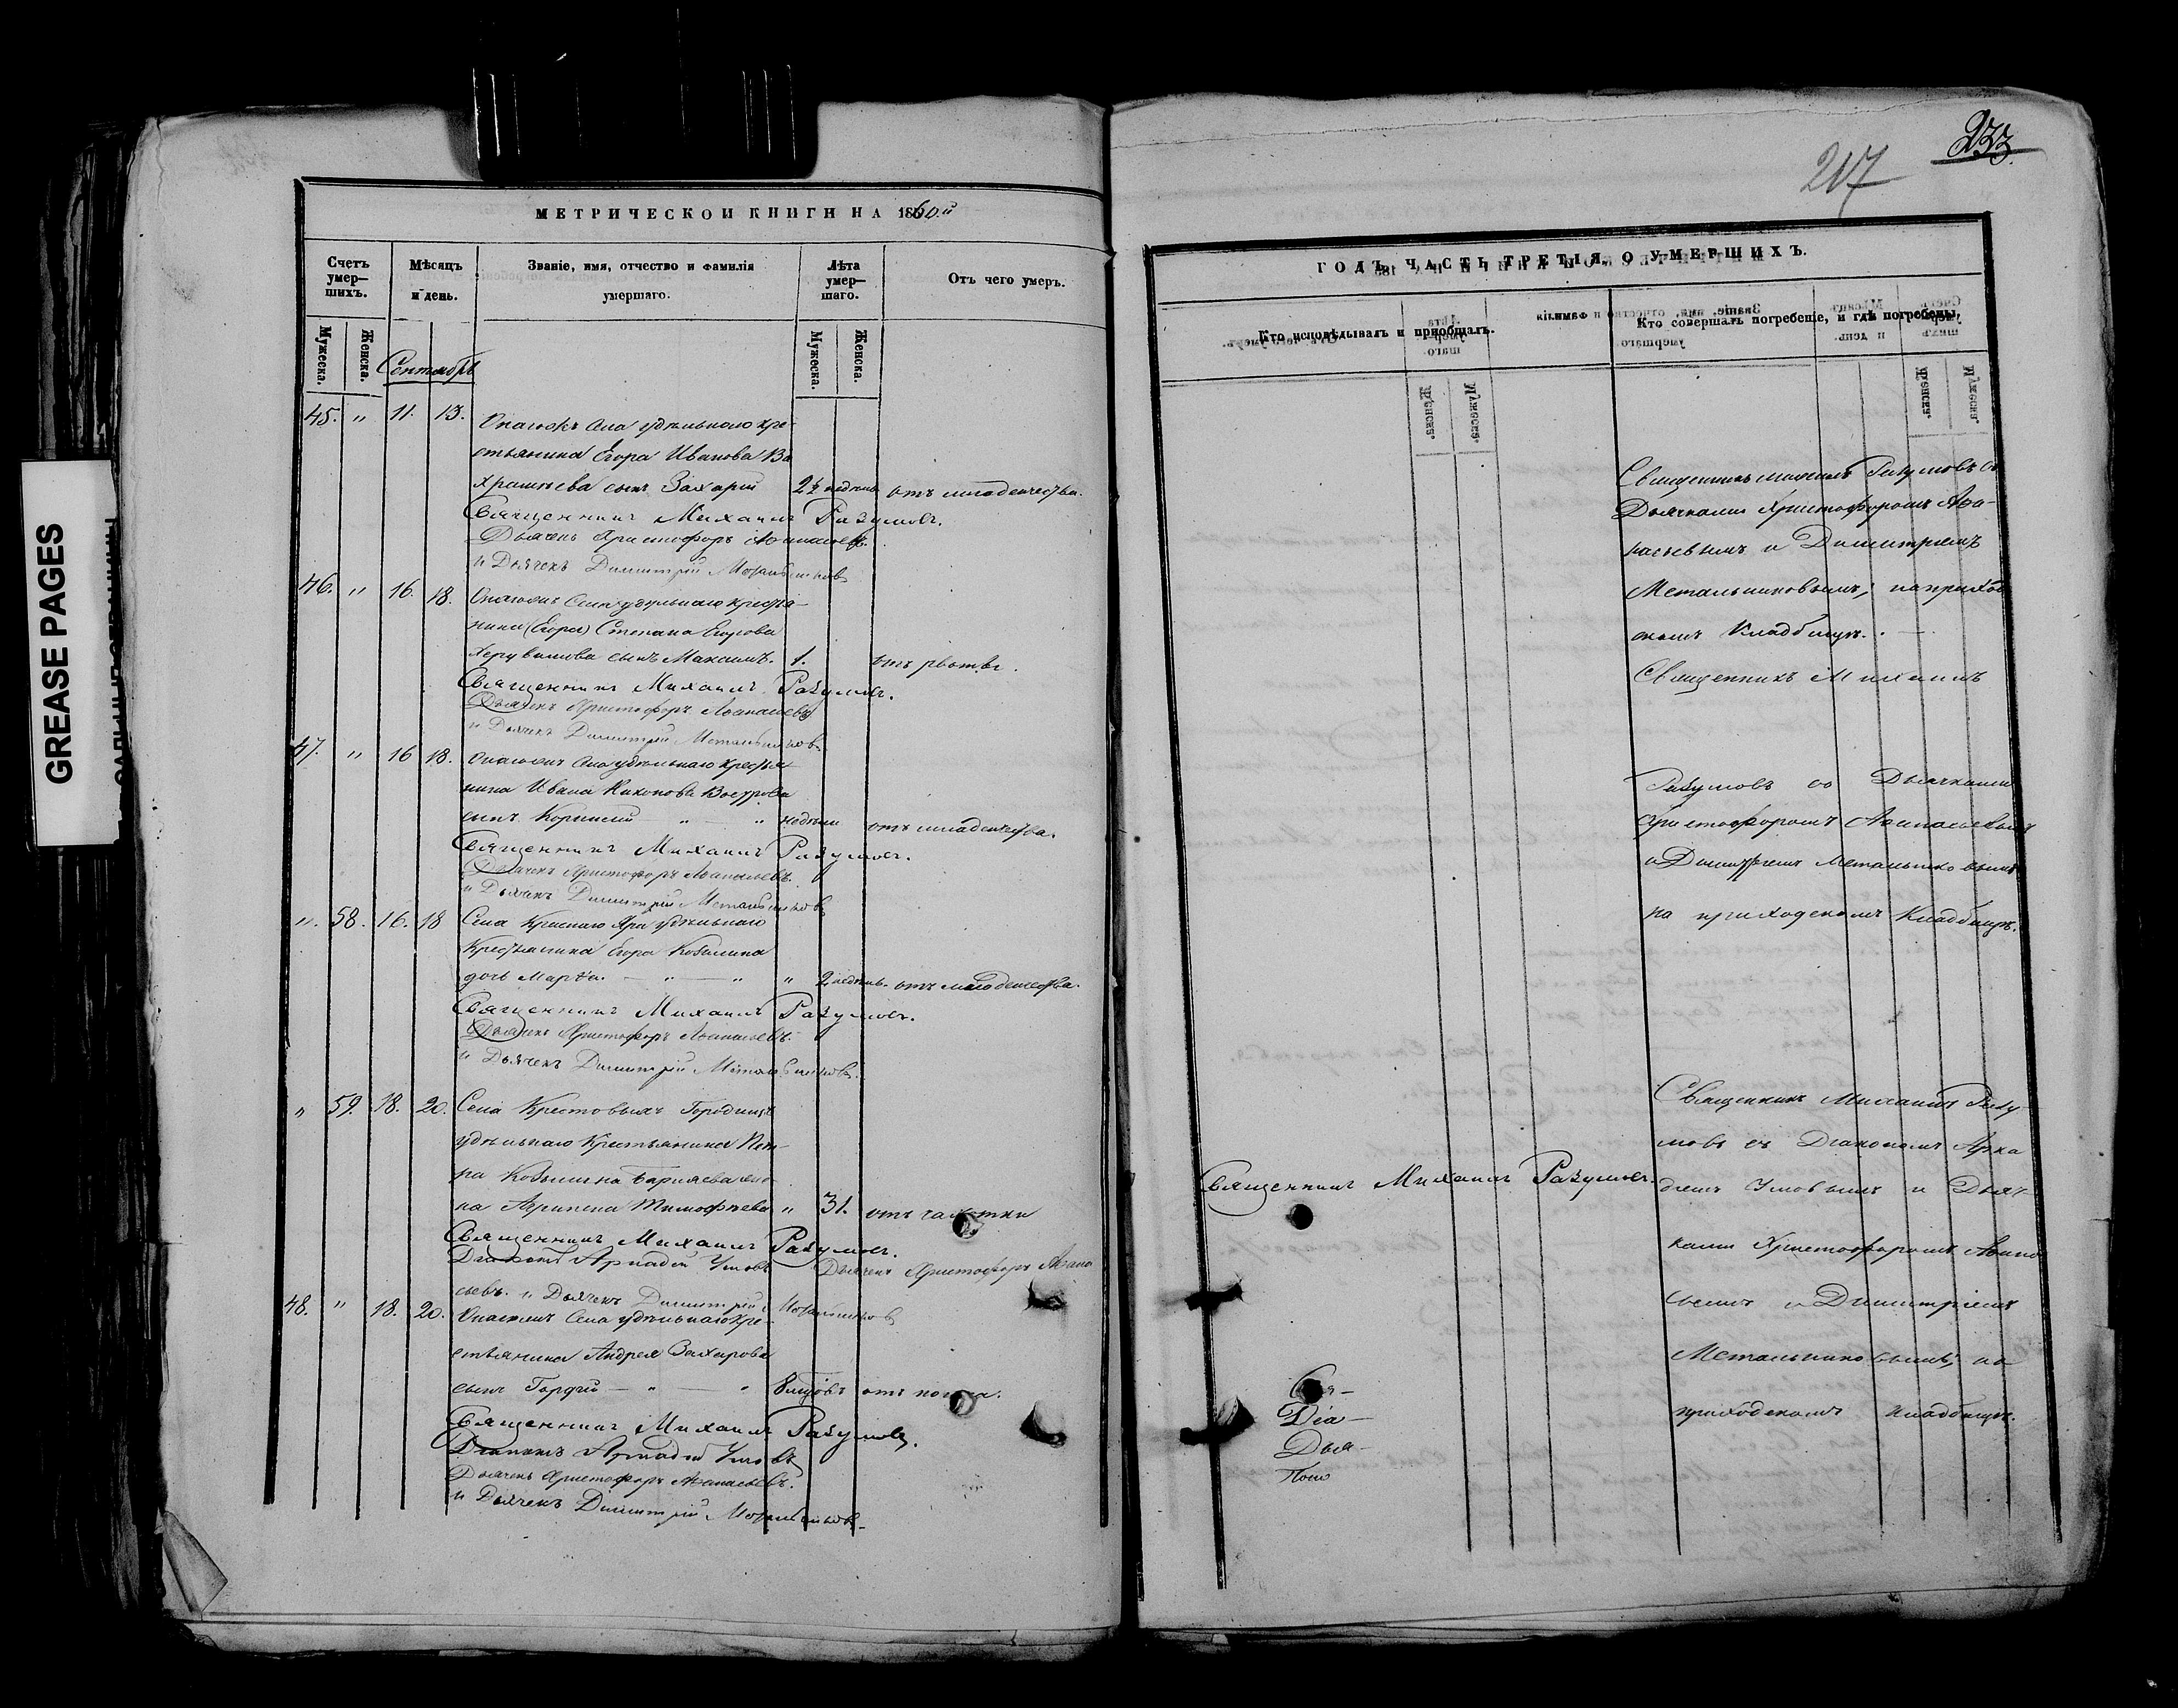 GREASE PAGES
МЕТРИЧЕСКОЙ КНИГИ НА 1860й
Счетъ умер-шихъ.
Мѣсяцъ и день.
Званіе, имя, отчество и фамилія умершаго.
Лѣта умер-шаго.
Отъ чего умеръ.
Мужеска.
Женска.
Мужеска.
Женска.
Сентябрь
45. " 11. 13.
села удѣльнаго кре-
стьянина Егора Иванова
сынъ Захарій 2½ недѣль отъ младенчества.
Священникъ Михаилъ Разумовъ.
Дьячекъ Христофоръ Аѳанасьевъ.
и Дьячекъ Димитрій Метальниковъ
46. " 16. 18.
села удѣльнаго крестья-
нина (Егора) Степана Егорова
Херувимова сынъ Максимъ. 1. отъ рвоты.
Священникъ Михаилъ Разумовъ.
Дьячекъ Христофоръ Аѳанасьевъ
и Дьячекъ Димитрій Метальниковъ
47. " 16 18.
села удѣльнаго крестья-
нина Ивана Вострова
сынъ Корнилій " " недѣли отъ младенчества.
Священникъ Михаилъ Разумовъ.
Дьячекъ Христофоръ Аѳанасьевъ.
и Дьячекъ Димитрій Метальниковъ
" 58. 16. 18 Села Краснаго Яра удѣльнаго
Крестьянина Егора Кобылина
дочь Марѳа. " " " 2 недѣль. отъ младенчества.
Священникъ Михаилъ Разумовъ.
Дьячекъ Христофоръ Аѳанасьевъ.
и Дьячекъ Димитрій Метальниковъ.
" 59. 18. 20. Села Крестовыхъ Городищъ
удѣльнаго Крестьянина Пет-
ра Кобылина жо-
на Агрипена Тимофѣева " 31. отъ чахотки
Священникъ Михаилъ Разумовъ.
Діаконъ Аркадій Умовъ Дьячекъ Христофоръ Аѳана
сьевъ. и Дьячекъ Димитрій Метальниковъ
48. " 18. 20. села удѣльнаго кре-
стьянина Андрея Захарова
сынъ Гордій " " 8 мѣсцовъ отъ поноса.
Священникъ Михаилъ Разумовъ.
Діаконъ Аркадій Умовъ
Дьячекъ Христофоръ Аѳанасьевъ.
и Дьячекъ Димитрій Метальниковъ.
217
233.
ГОДЪ, ЧАСТЬ ТРЕТІЯ, О УМЕРШИХЪ.
Кто исповѣдывалъ и пріобщалъ.
Кто совершалъ погребеніе, и гдѣ погребены.
Священникъ Михаилъ Разумовъ съ
Дьячками Христофоромъ Аѳа-
насьевымъ и Димитріемъ
Метальниковымъ, на приход
скомъ Кладбищѣ.
Священникъ Михаилъ
Разумовъ со Дьячками
Христофоромъ Аѳанасьевымъ
и Димитріемъ Метальниковымъ
на приходскомъ Кладбищѣ.
Священникъ Михаилъ Разу-
мовъ съ Діакономъ Арка
діемъ Умовымъ и Дьяч-
ками Христофоромъ Аѳана
сьевымъ и Димитріемъ
Метальниковымъ, на
приходскомъ Кладбищѣ.
Священникъ Михаилъ Разумовъ.
Діа-
Дья-